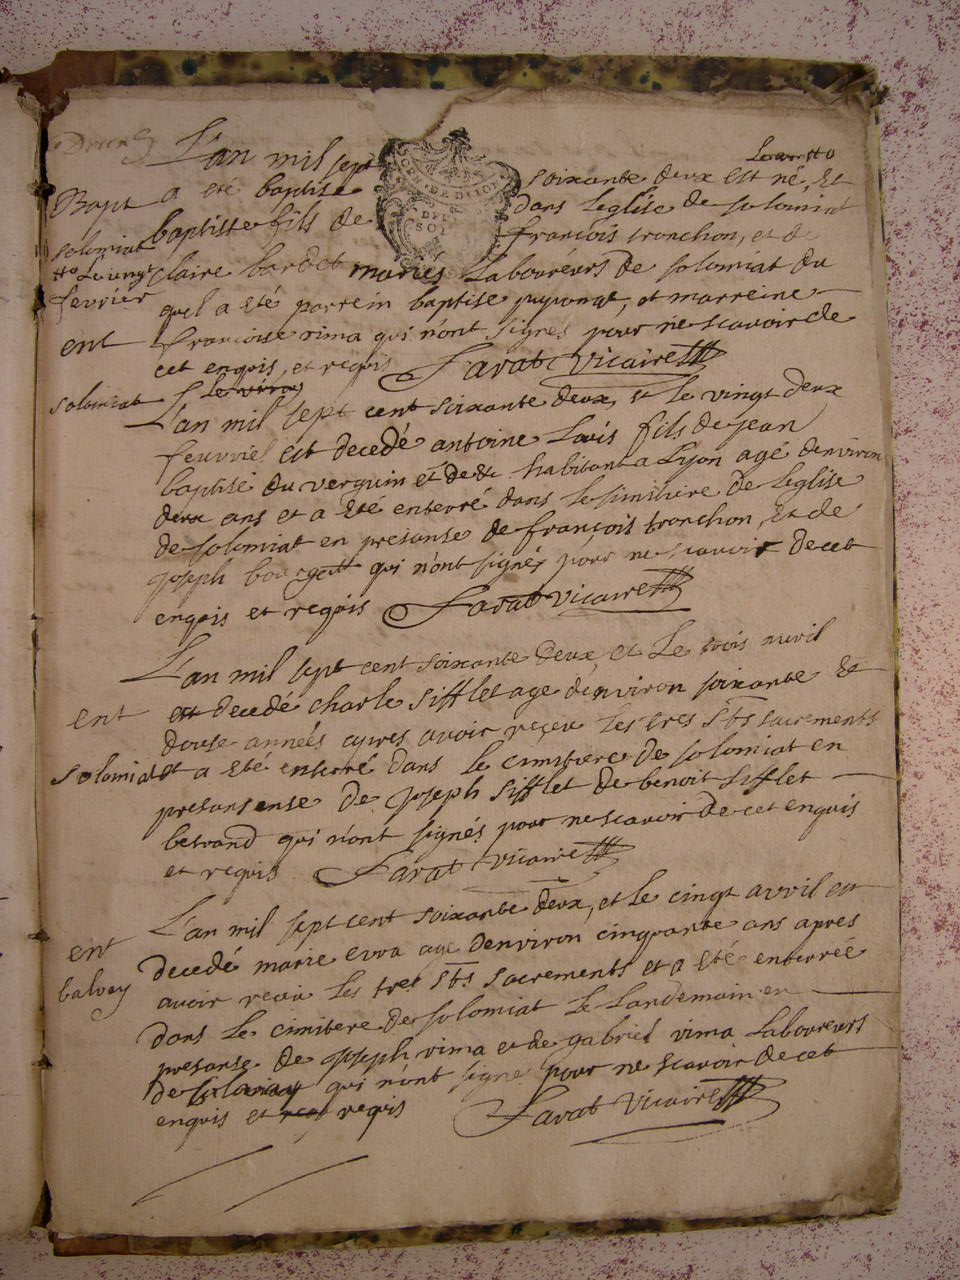 L'an mil sept soixante deux est né, et
Bapt a eté baptisé dans Leglise de solomiat
solomiat baptiste fils de françois tronchon, et de
claire bardet mariés Laboureurs de solomiat du
fevrier quel a eté parrein baptise et marreine
ent francoise rima qui n'ont signes pour ne scavoir de
cet enquis, et requis Savat Vicaire
solomiat
L'an mil sept cent soixante deux, et le vingt deux
feuvrier est decedé antoine Louis fils de jean
baptise du verguin et de habitant a Lyon agé denviron
deux ans et a eté enterré dans le simitiere de Leglise
de solomiat en presanse de françois tronchon, et de
joseph qui n'ont signés pour ne scavoir de cet
enquis et requis Savat vicaire
L'an mil sept cent soixante deux, et Le trois avril
ent est decedé charle sifflet age denviron soixante et
douse années apres avoir reçeu les tres sts sacrements
solomiat et a eté enterré dans le cimitiere de solomiat en
presansense de joseph sifflet de benoit sifflet
betrand qui n'ont signés pour ne scavoir de cet enquis
et requis Savat vicaire
L'an mil sept cent soixante deux, et le cinqt avril est
ent decedé marie age denviron cinquante ans apres
balvay avoir reçeu Les tres sts sacrements et a eté enterrée
dans Le cimitere de solomiat Le Landemain en
presanse de joseph vima et de gabriel vima Laboureurs
de qui n'ont signe pour ne scavoir de cet
enquis et requis Savat Vicaire